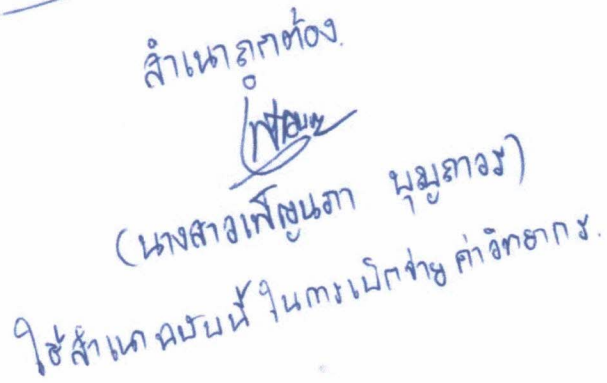 สำเนาถูกต้อง
(นางสาวเพ็ญนภา บุญถาวร)
ใช้สำเนาฉบับนี้ ในการเบิกจ่าย ค่าวิทยากร.